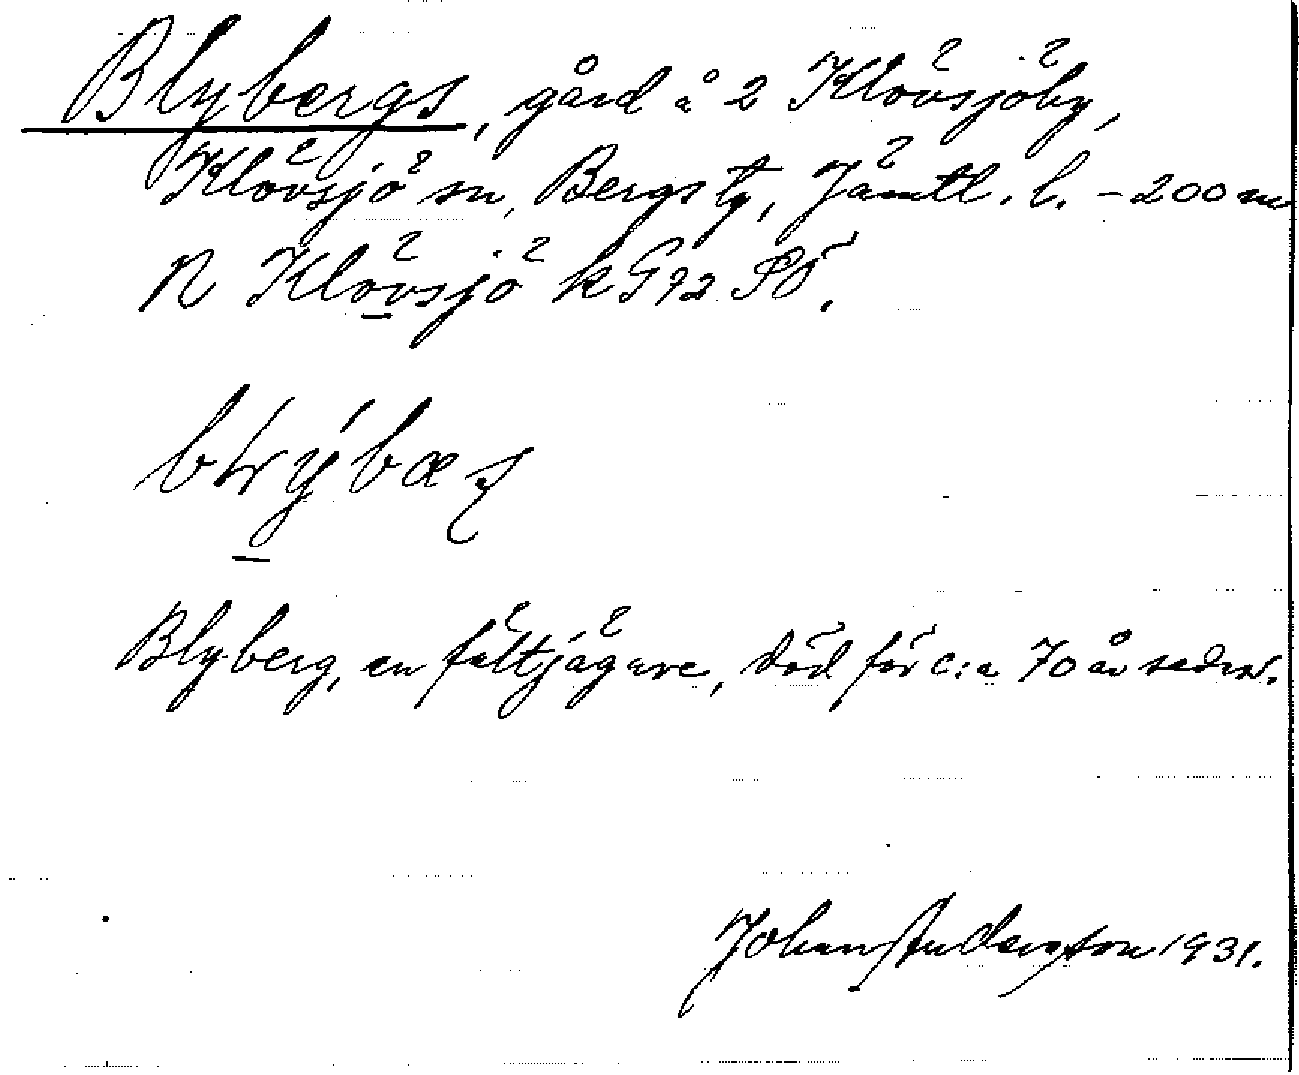 Blybergs, gård å 2 Klövsjöby,
Klövsjö sn, Bergs tg, Jämtl. l. – 200 m
N Klövsjö k G92 SÖ.
Blyberg, en fältjägare, död för c:a 70 år sedan.
Johan Anderson 1931.